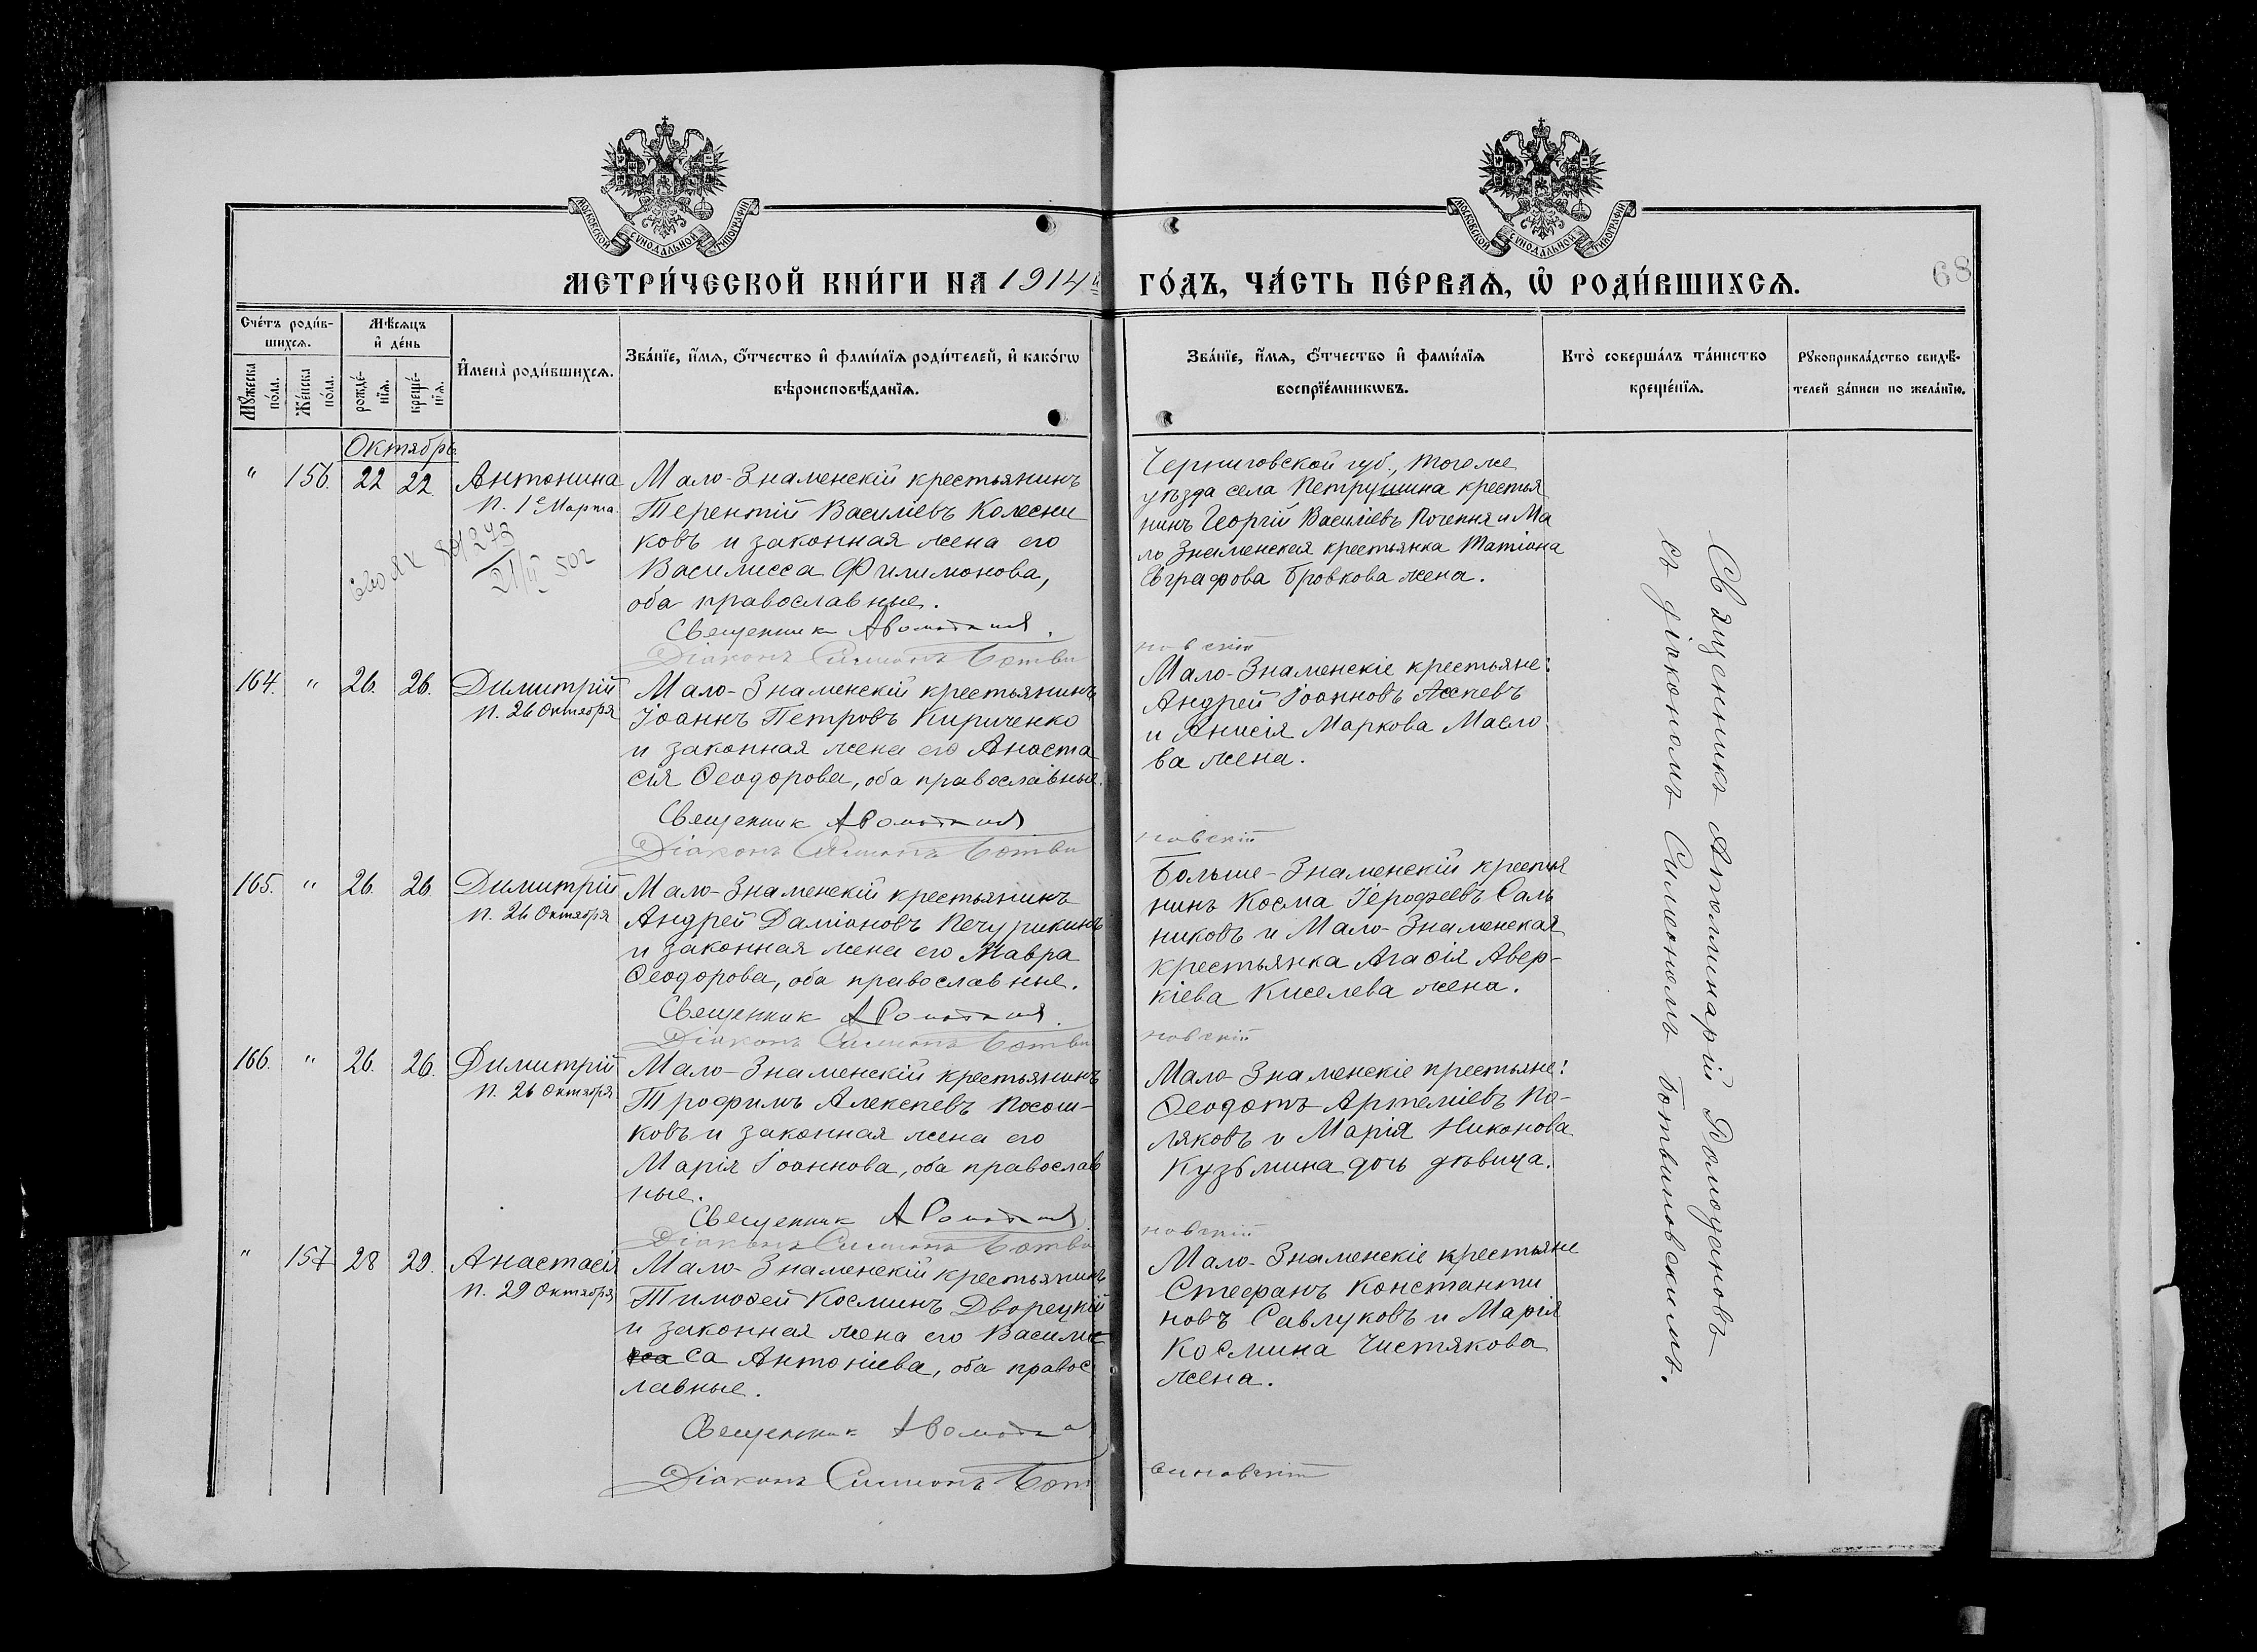 МОСКОВСКОЙ СѴНОДАЛЬНОЙ ТИПОГРАФІИ
МОСКОВСКОЙ СѴНОДАЛЬНОЙ ТИПОГРАФІИ
МЕТРИ́ЧЕСКОЙ КНИ́ГИ НА 1914й ГО́ДЪ, ЧА́СТЬ ПЕ́РВАѦ, Ѽ РОДИ́ВШИХСѦ.
68
Сче́тъ роди́в-
шихсѧ.
Мꙋ́жеска
по́ла.
Же́нска
по́ла.
Мѣ́сѧцъ
и҆ де́нь
рожде́-
нїѧ.
креще́-
нїѧ.
И҆мена̀ роди́вшихсѧ.
Зва́нїе, и҆́мѧ, ѻ҆́тчество и҆ фами́лїѧ роди́телей, и҆ како́гѡ
вѣроисповѣ́данїѧ.
Зва́нїе, и҆́мѧ, ѻ҆́тчество и҆ фами́лїѧ
воспрїе́мникѡвъ.
Кто̀ соверша́лъ та́инство
креще́нїѧ.
Рꙋкоприкла́дство свидѣ́-
телей за́писи по жела́нїю.
Октябрь
" 156. 22 22
Антонина
п. 1е Марта.
Мало-Знаменскій крестьянинъ
Терентій Василіевъ Колесни
ковъ и законная жена его
Василисса Филимонова,
оба православные.
Священник
Діаконъ Симеонъ Ботви
новскій
Черниговской губ., тогоже
уѣзда села Петрушина крестья
нинъ Георгій Василіевъ Почепня и Ма
ло Знаменская крестьянка Татіана
Евграфова Бровкова жена.
164. " 26. 26.
Димитрій
п. 26 Октября
Мало-Знаменскій крестьянинъ
Іоаннъ Петровъ Кириченко
и законная жена его Анаста
сія Ѳеодорова, оба православные.
Священник
Діаконъ Симеонъ Ботви
новскій
Мало-Знаменскіе крестьяне:
Андрей Іоанновъ
и Анисія Маркова Масло
ва жена.
165. " 26. 26.
Димитрій
п. 26 Октября
Мало-Знаменскій крестьянинъ
Андрей Даміановъ Печурикинъ
и законная жена его Мавра
Ѳеодорова, оба православные.
Священник
Діаконъ Симеонъ Ботви
новскій
Больше-Знаменскій крестья
нинъ Косма Іерофеевъ Саль
никовъ и Мало-Знаменская
крестьянка Агафія Авер-
кіева Киселева жена.
166. " 26. 26.
Димитрій
п. 26 Октября
Мало-Знаменскій крестьянинъ
Трофимъ Алексѣевъ Посош-
ковъ и законная жена его
Марія Іоаннова, оба православ
ные.
Священник
Діаконъ Симеонъ Ботви
новскій
Мало-Знаменскіе крестьяне:
Ѳеодотъ Артеміевъ По-
ляковъ и Марія Никонова
Кузьмина дочь дѣвица.
" 157 28 29.
Анастасія
п. 29 Октября
Мало-Знаменскій крестьянинъ
Тимофей Косминъ Дворецкій
и законная жена его Василис
са Антоніева, оба правос
лавные.
Священник
Діаконъ Симеонъ Бот
виновскій
Мало-Знаменскіе крестьяне
Стефанъ Константи
новъ Савлуковъ и Марія
Космина Чистякова
жена.
Священникъ Аполлинарій Ромодановъ
съ діакономъ Симеономъ Ботвиновскимъ.